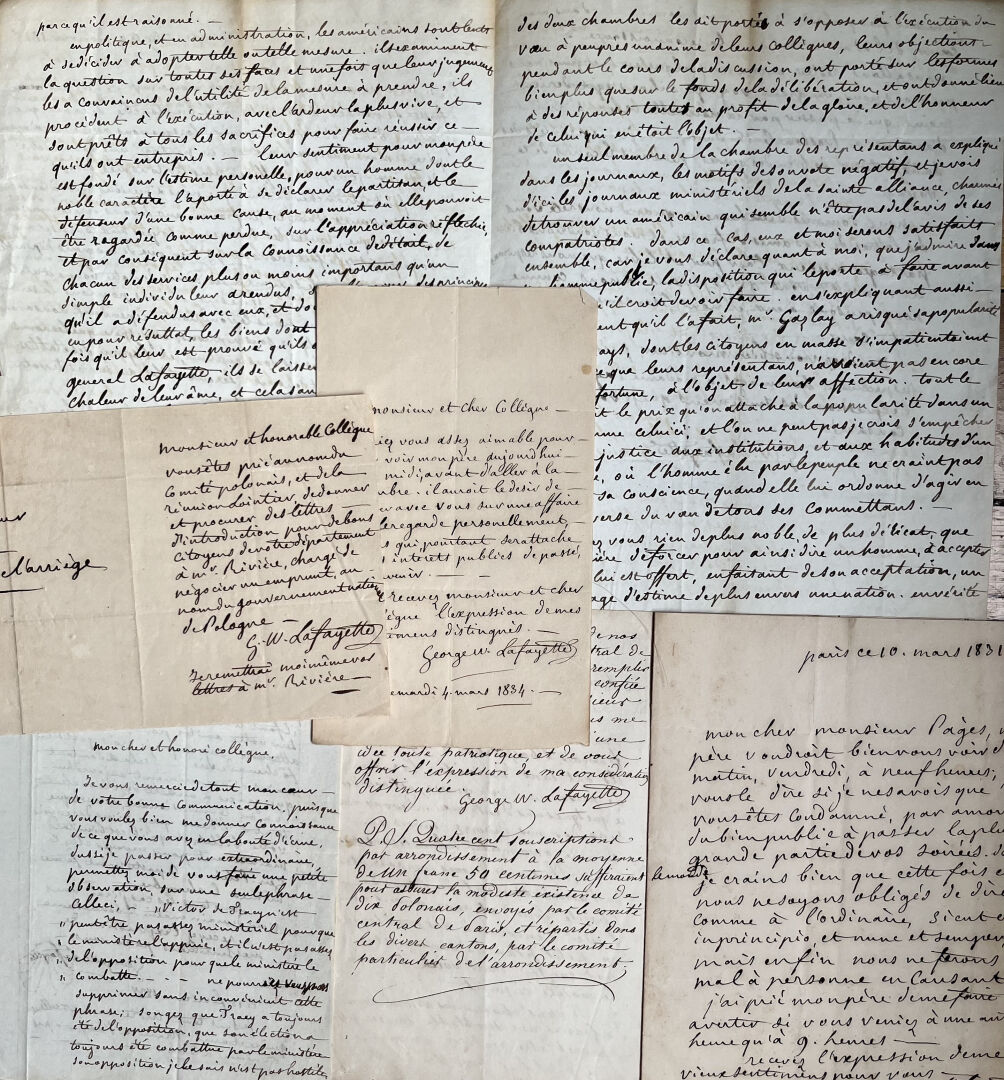 parcequ'il est raisonné. —
en politique, et en administration, les américains sont lents
à se décider à adopter telle ou telle mesure. ils examinent
la question sur toutes ses faces et une fois que leur jugement
les a convaincus de l'utilité de la mesure à prendre, ils
procèdent à l'exécution, avec l'ardeur la plus vive, et
sont prêts à tous les sacrifices pour faire réussir ce —
qu'ils ont entrepris. — leur sentiment pour mon père
est fondé sur l'estime personelle, pour un homme dont le
noble caractère l'a porté à se déclarer le partisan, et le
défenseur d'une bonne cause, au moment où elle pouvoit
être regardée comme perdue, sur l'appréciation réfléchie,
et par conséquent sur la connoissance de détail, de
chacun des services plus ou moins importans qu'un
simple individu leur a rendus,
qu'il a défendus avec eux, et do
eu pour résultat, les biens dont
fois qu'il leur est prouvé qu'ils
general Lafayette, ils se laisse
chaleur de leur âme, et cela san
des deux chambres les ait portés à s'opposer à l'exécution du
vœu à peu près unanime de leurs collègues, leurs objections
pendant le cours de la discussion, ont porté sur les formes
bien plus que sur le fonds de la délibération, et ont donné lieu
à des réponses toutes au profit de la gloire, et de l'honneur
de celui qui en était l'objet. —
un seul membre de la chambre des représentans a expliqué
dans les journaux, les motifs de son vote négatif, et je vois
d'ici les journaux ministériels de la sainte alliance, charmés
de trouver un américain qui semble n'être pas de l'avis de ses
compatriotes. dans ce cas, eux et moi serons satisfaits
ensemble, car je vous déclare quant à moi, que j'admire dans
homme public, la disposition qui le porte à faire avant
'il croit devoir faire. en s'expliquant aussi —
ent qu'il l'a fait, mr. Gazlay a risqué sa popularité
ays, dont les citoyens en masse s'impatientoient
que leurs représentans, n'avoient pas encore
fortune, à l'objet de leur affection. tout le
t le prix qu'on attache à la popularité dans un
me celui ci, et l'on ne peut pas je crois s'empêcher
justice aux institutions, et aux habitudes d'un
, où l'homme élu par le peuple ne craint pas
sa conscience, quand elle lui ordonne d'agir en
verse du vœu de tous ses commettans. —
ez vous rien de plus noble, de plus délicat, que
ière de forcer pour ainsi dire un homme, à accepter
lui est offert, en faisant de son acceptation, un
age d'estime de plus envers une nation. en vérité
eur
de l'arriège
monsieur et honorable Collègue
vous êtes prié au nom du
Comité polonais, et de la
réunion Lointier, de donner
et procurer des lettres —
d'introduction pour de bons
citoyens de votre département
à mr. Rivière, chargé de
négocier un emprunt, au
nom du gouvernement national
de Pologne —
G. W. Lafayette
Je remettrai moi même vos
lettres à mr. Rivière —
monsieur et cher Collègue —
iez vous assez aimable pour —
voir mon père aujourdhui
midi, avant d'aller à la
mbre. il auroit le desir de —
er avec vous sur une affaire
le regarde personellement,
s qui pourtant se rattache
interets publics de passé,
venir. —
recevez monsieur et cher
ègue l'expression de mes
imens distingués. —
George W. Lafayette
e mardi 4. mars 1834. —
de nos
tral de
remplir
confiée
ieurs
us me
'une
idée toute patriotique, et de vous
offrir l'expression de ma considération
distinguée
George W. Lafayette
P. S. Quatre cent souscriptions
par arrondissement à la moyenne
de un franc 50 centimes suffiraient
pour assurer la modeste existence de
dix Polonais, envoyés par le comité
central de Paris, et répartis dans
les divers cantons, par le comité
particulier de l'arrondissement
mon cher et honoré collègue,
Je vous remercie de tout mon cœur —
de votre bonne Communication, puisque
vous voulez bien me donner connoissance
de ce que vous avez eu la bonté d'écrire,
dussé je passer pour extraordinaire,
permettez moi de vous faire une petite
observation, sur une seule phrase —
Celle ci, — „ Victor de Tracy n'est
„ peut être pas assez ministériel pour que
„ le ministère l'appuie, et il n'est pas assez
„ de l'opposition pour que le ministère le
„ combatte. — ne pourriez vous pas
supprimer sans inconvénient cette
phrase; songez que Tracy a toujours
été de l'opposition, que son élection a
toujours été combattue par le ministère
son opposition je le sais n'est pas hostile,
paris ce 10. mars 1831
mon cher monsieur Pagès,
père voudrait bien vous voir
matin, vendredi, à neuf heures;
vous le dire si je ne savois que
vous êtes condamné, par amour
du bien public à passer la plus
grande partie de vos soirées.
je crains bien que cette fois
nous ne soyons obligés de dire
comme à l'ordinaire, sicut e
in principio, et nunc et semper
mais enfin nous ne ferons
mal à personne en causant
j'ai prié mon père de me faire
avertir si vous veniez à une autre
heure qu'à 9. heures —
recevez l'expression de me
vieux sentimens pour vous —